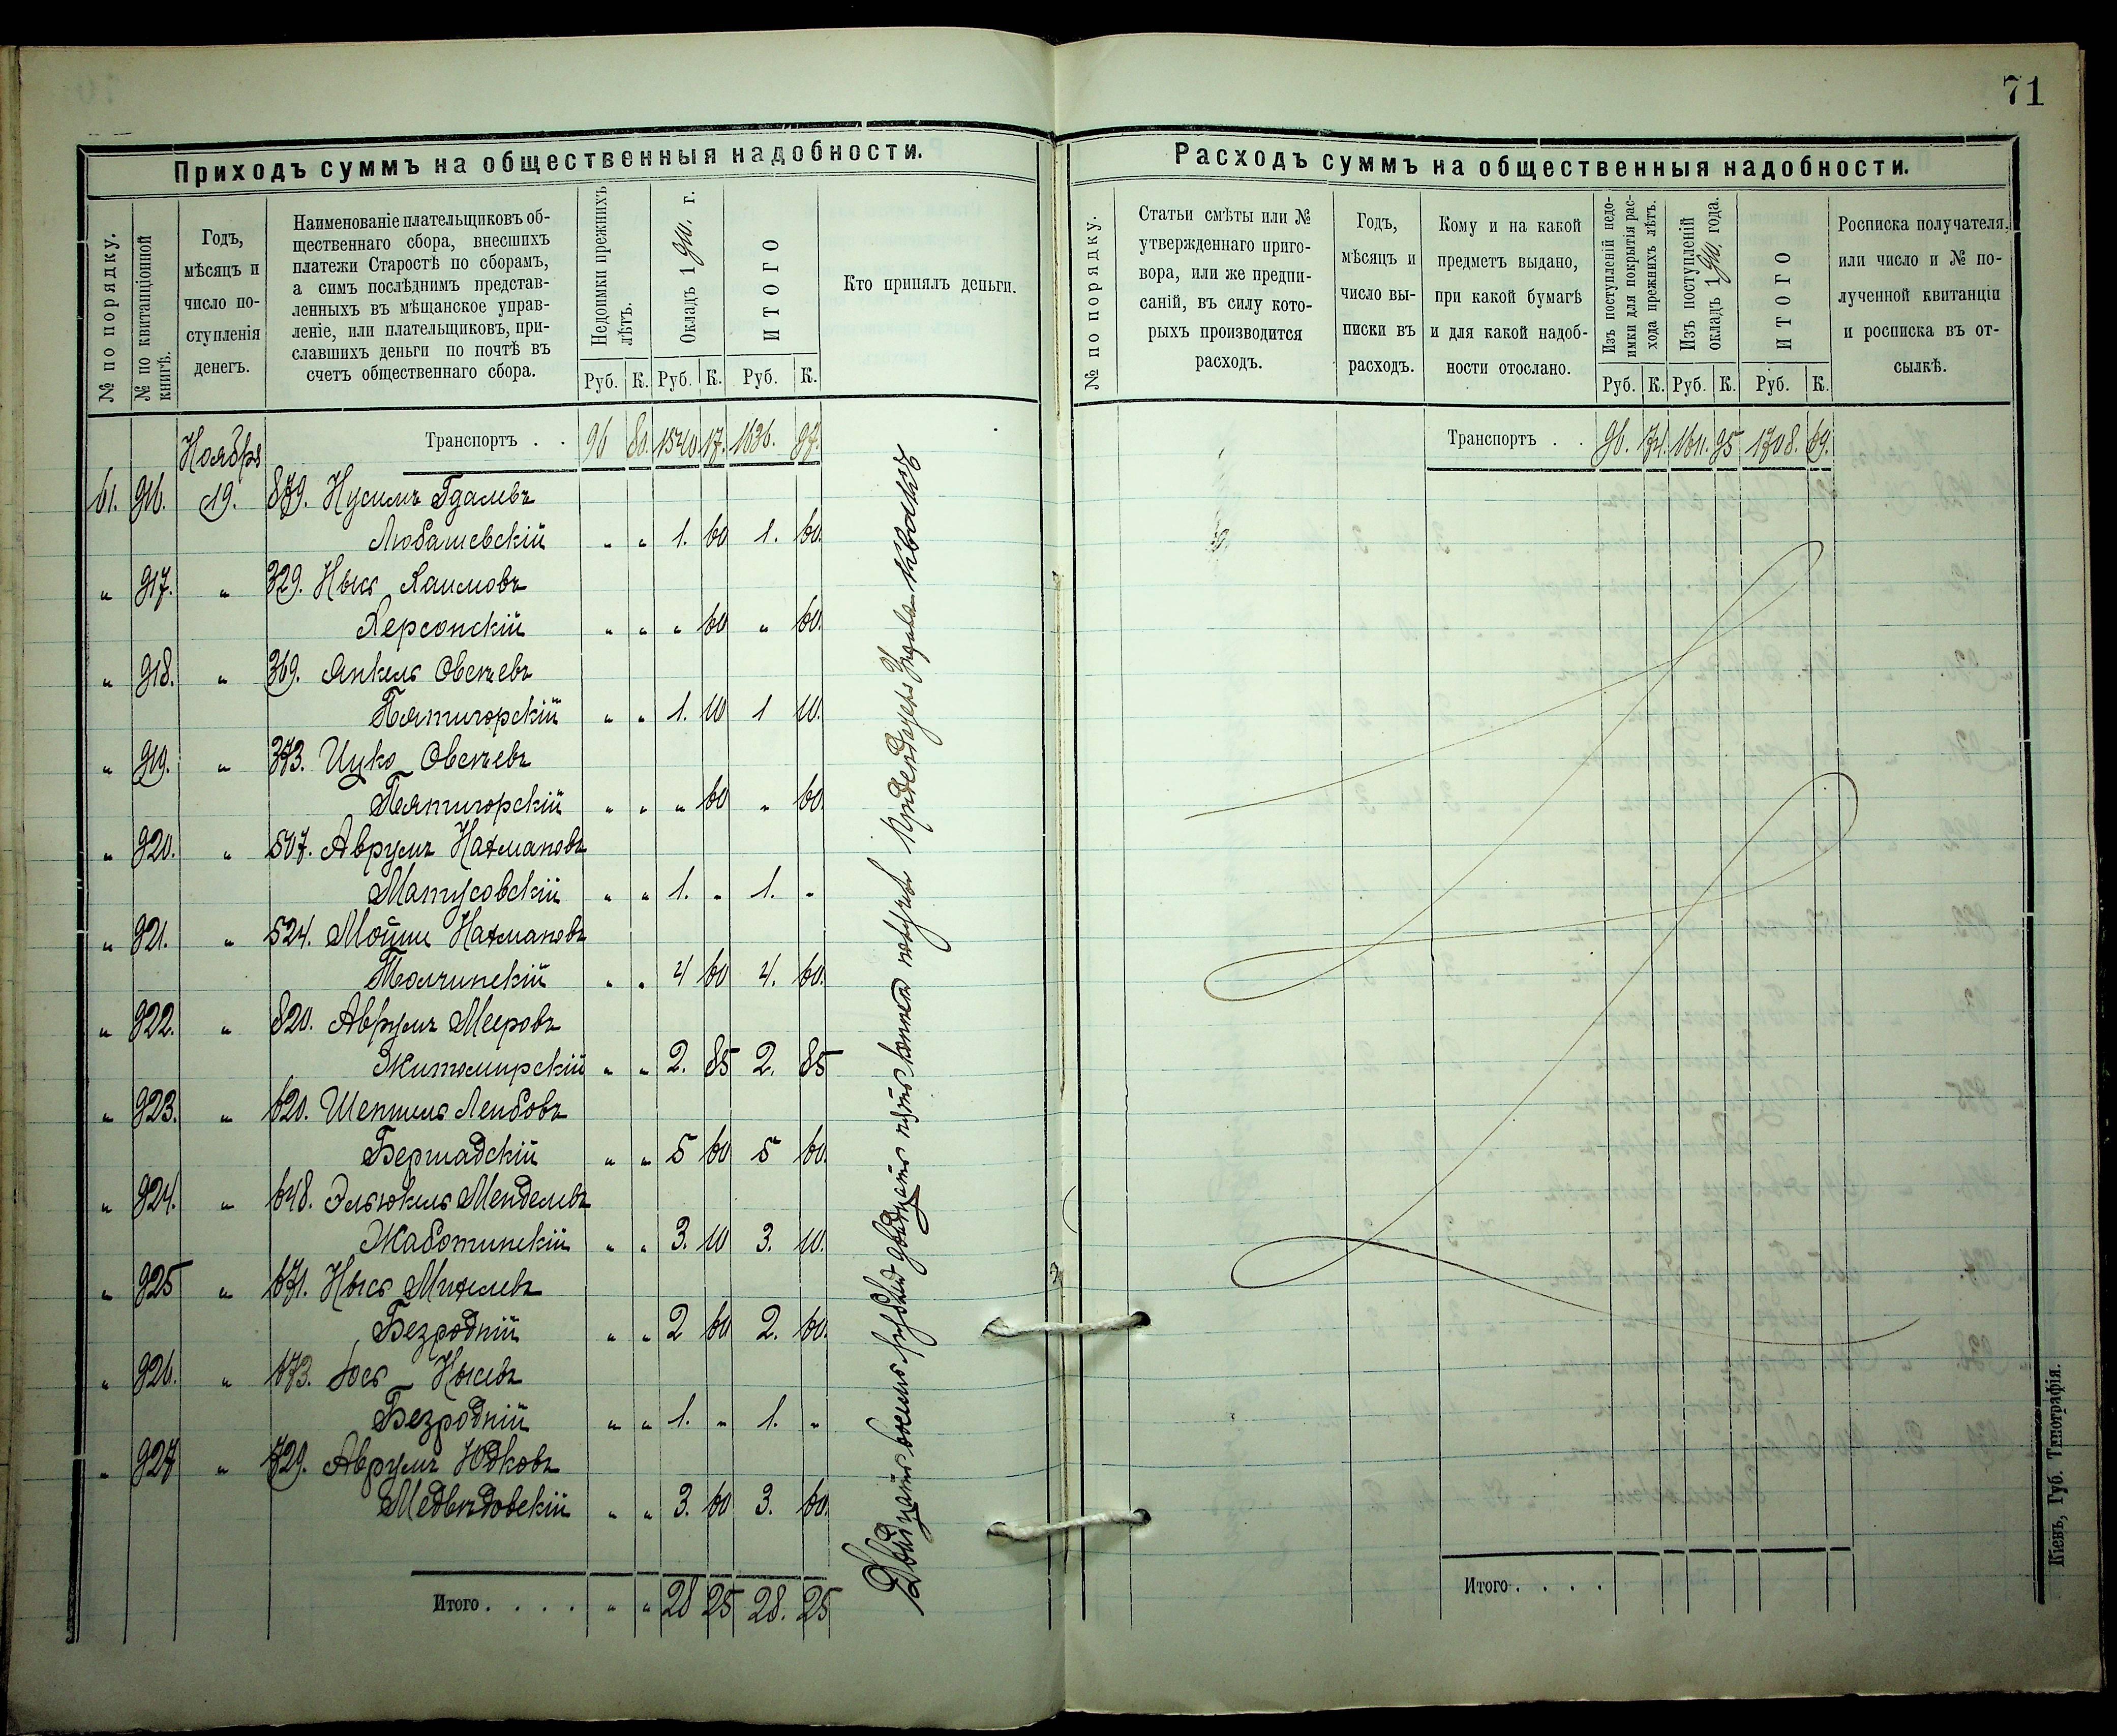 71
Приходъ суммъ на общественныя надобности.
№ по порядку.
№ по квитанціонной книгѣ.
Годъ,
мѣсяцъ и
число по-
ступленія
денегъ.
Наименованіе плательщиковъ об-
щественнаго сбора, внесшихъ
платежи Старостѣ по сборамъ,
а симъ послѣднимъ представ-
ленныхъ въ мѣщанское управ-
леніе, или плательщиковъ, при-
славшихъ деньги по почтѣ въ
счетъ общественнаго сбора.
Недоимки прежнихъ
лѣтъ.
Окладъ 1910. г.
ИТОГО
Кто принялъ деньги.
Руб. К. Руб. К. Руб. К.
Транспортъ . . 96 80. 1540 17. 1636. 97.
Ноября
61. 916. 19. 879. Нусимъ Гдалевъ
Любашевскій " " 1. 60 1. 60.
" 917. " 329. Нысь Хаимовъ
Херсонскій " " " 60 " 60.
" 918. " 369. Янкель Овсѣевъ
Пятигорскій " " 1. 10 1 10.
" 919. " 373. Ицко Овсѣевъ
Пятигорскій " " " 60 " 60
" 920. " 507. Аврумъ Нахмановъ
Матусовскій " " 1. " 1. "
" 921. " 524. Мойше Нахмановъ
Теплинскій " " 4 60 4. 60.
" 922. " 820. Аврумъ Мееровъ
Житомирскій " " 2. 85 2. 85
" 923. " 620. Шепшель Лейбовъ
Бершадскій " " 5 60 5 60.
" 924. " 648. Эльюкель Менделевъ
Жаботинскій " " 3. 10 3. 10.
" 925 " 671. Нысь Михелевъ
Безродній " " 2 60 2. 60.
" 926. " 673. Іось Нысевъ
Безродній " " 1. " 1. "
" 927 " 729. Аврумъ Юдковъ
Медвѣдовскій " " 3. 60 3. 60.
Итого . . . . " " 28 25 28. 25
Двадцать восемь рублей двадцать пять копѣекъ получилъ
Расходъ суммъ на общественныя надобности.
№ по порядку.
Статьи смѣты или №
утвержденнаго приго-
вора, или же предпи-
саній, въ силу кото-
рыхъ производится
расходъ.
Годъ,
мѣсяцъ и
число вы-
писки въ
расходъ.
Кому и на какой
предметъ выдано,
при какой бумагѣ
и для какой надоб-
ности отослано.
Изъ поступленій недо-
имки для покрытія рас-
хода прежнихъ лѣтъ.
Изъ поступленій
окладъ 1910. года.
ИТОГО
Росписка получателя,
или число и № по-
лученной квитанціи
и росписка въ от-
сылкѣ.
Руб. К. Руб. К. Руб. К.
Транспортъ . . 96. 74. 1611. 95 1708. 69.
Итого . . . .
Кіевъ, Губ. Типографія.